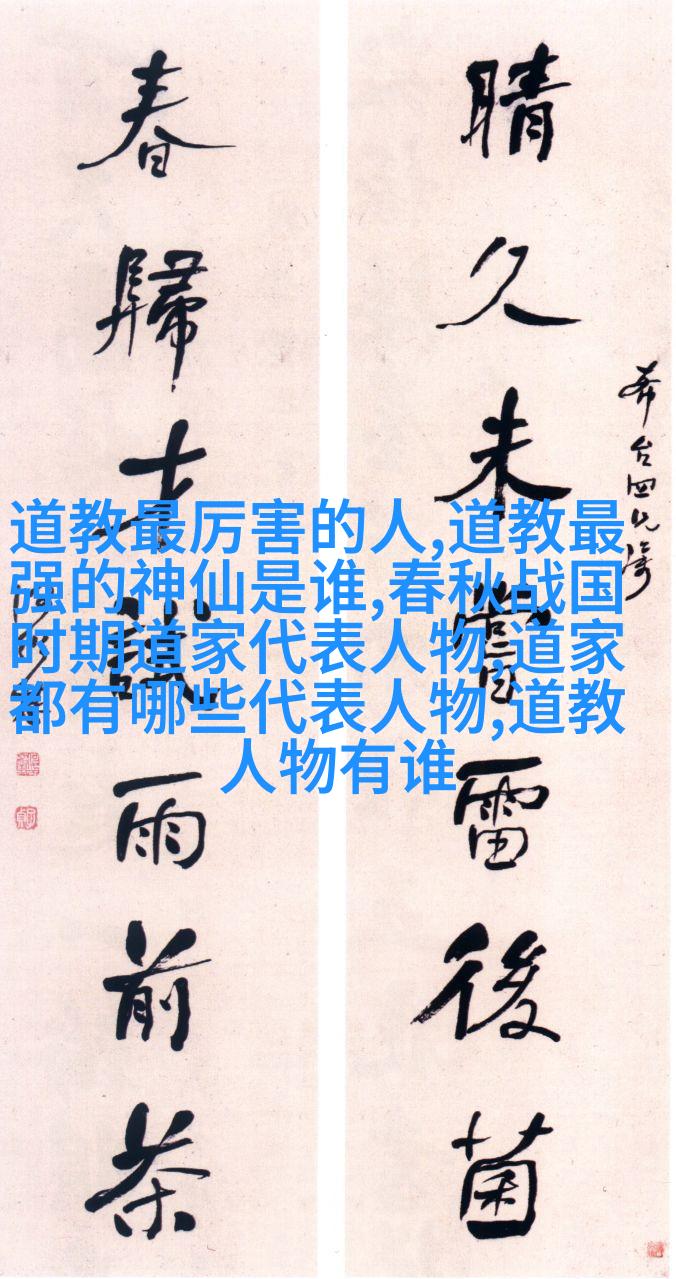 晴久未嘗雷後菌
春歸才試雨前茶
道教最厉害的人,道教最
强的神仙是谁,春秋战国
时期道家代表人物,道家
都有哪些代表人物,道教
人物有谁